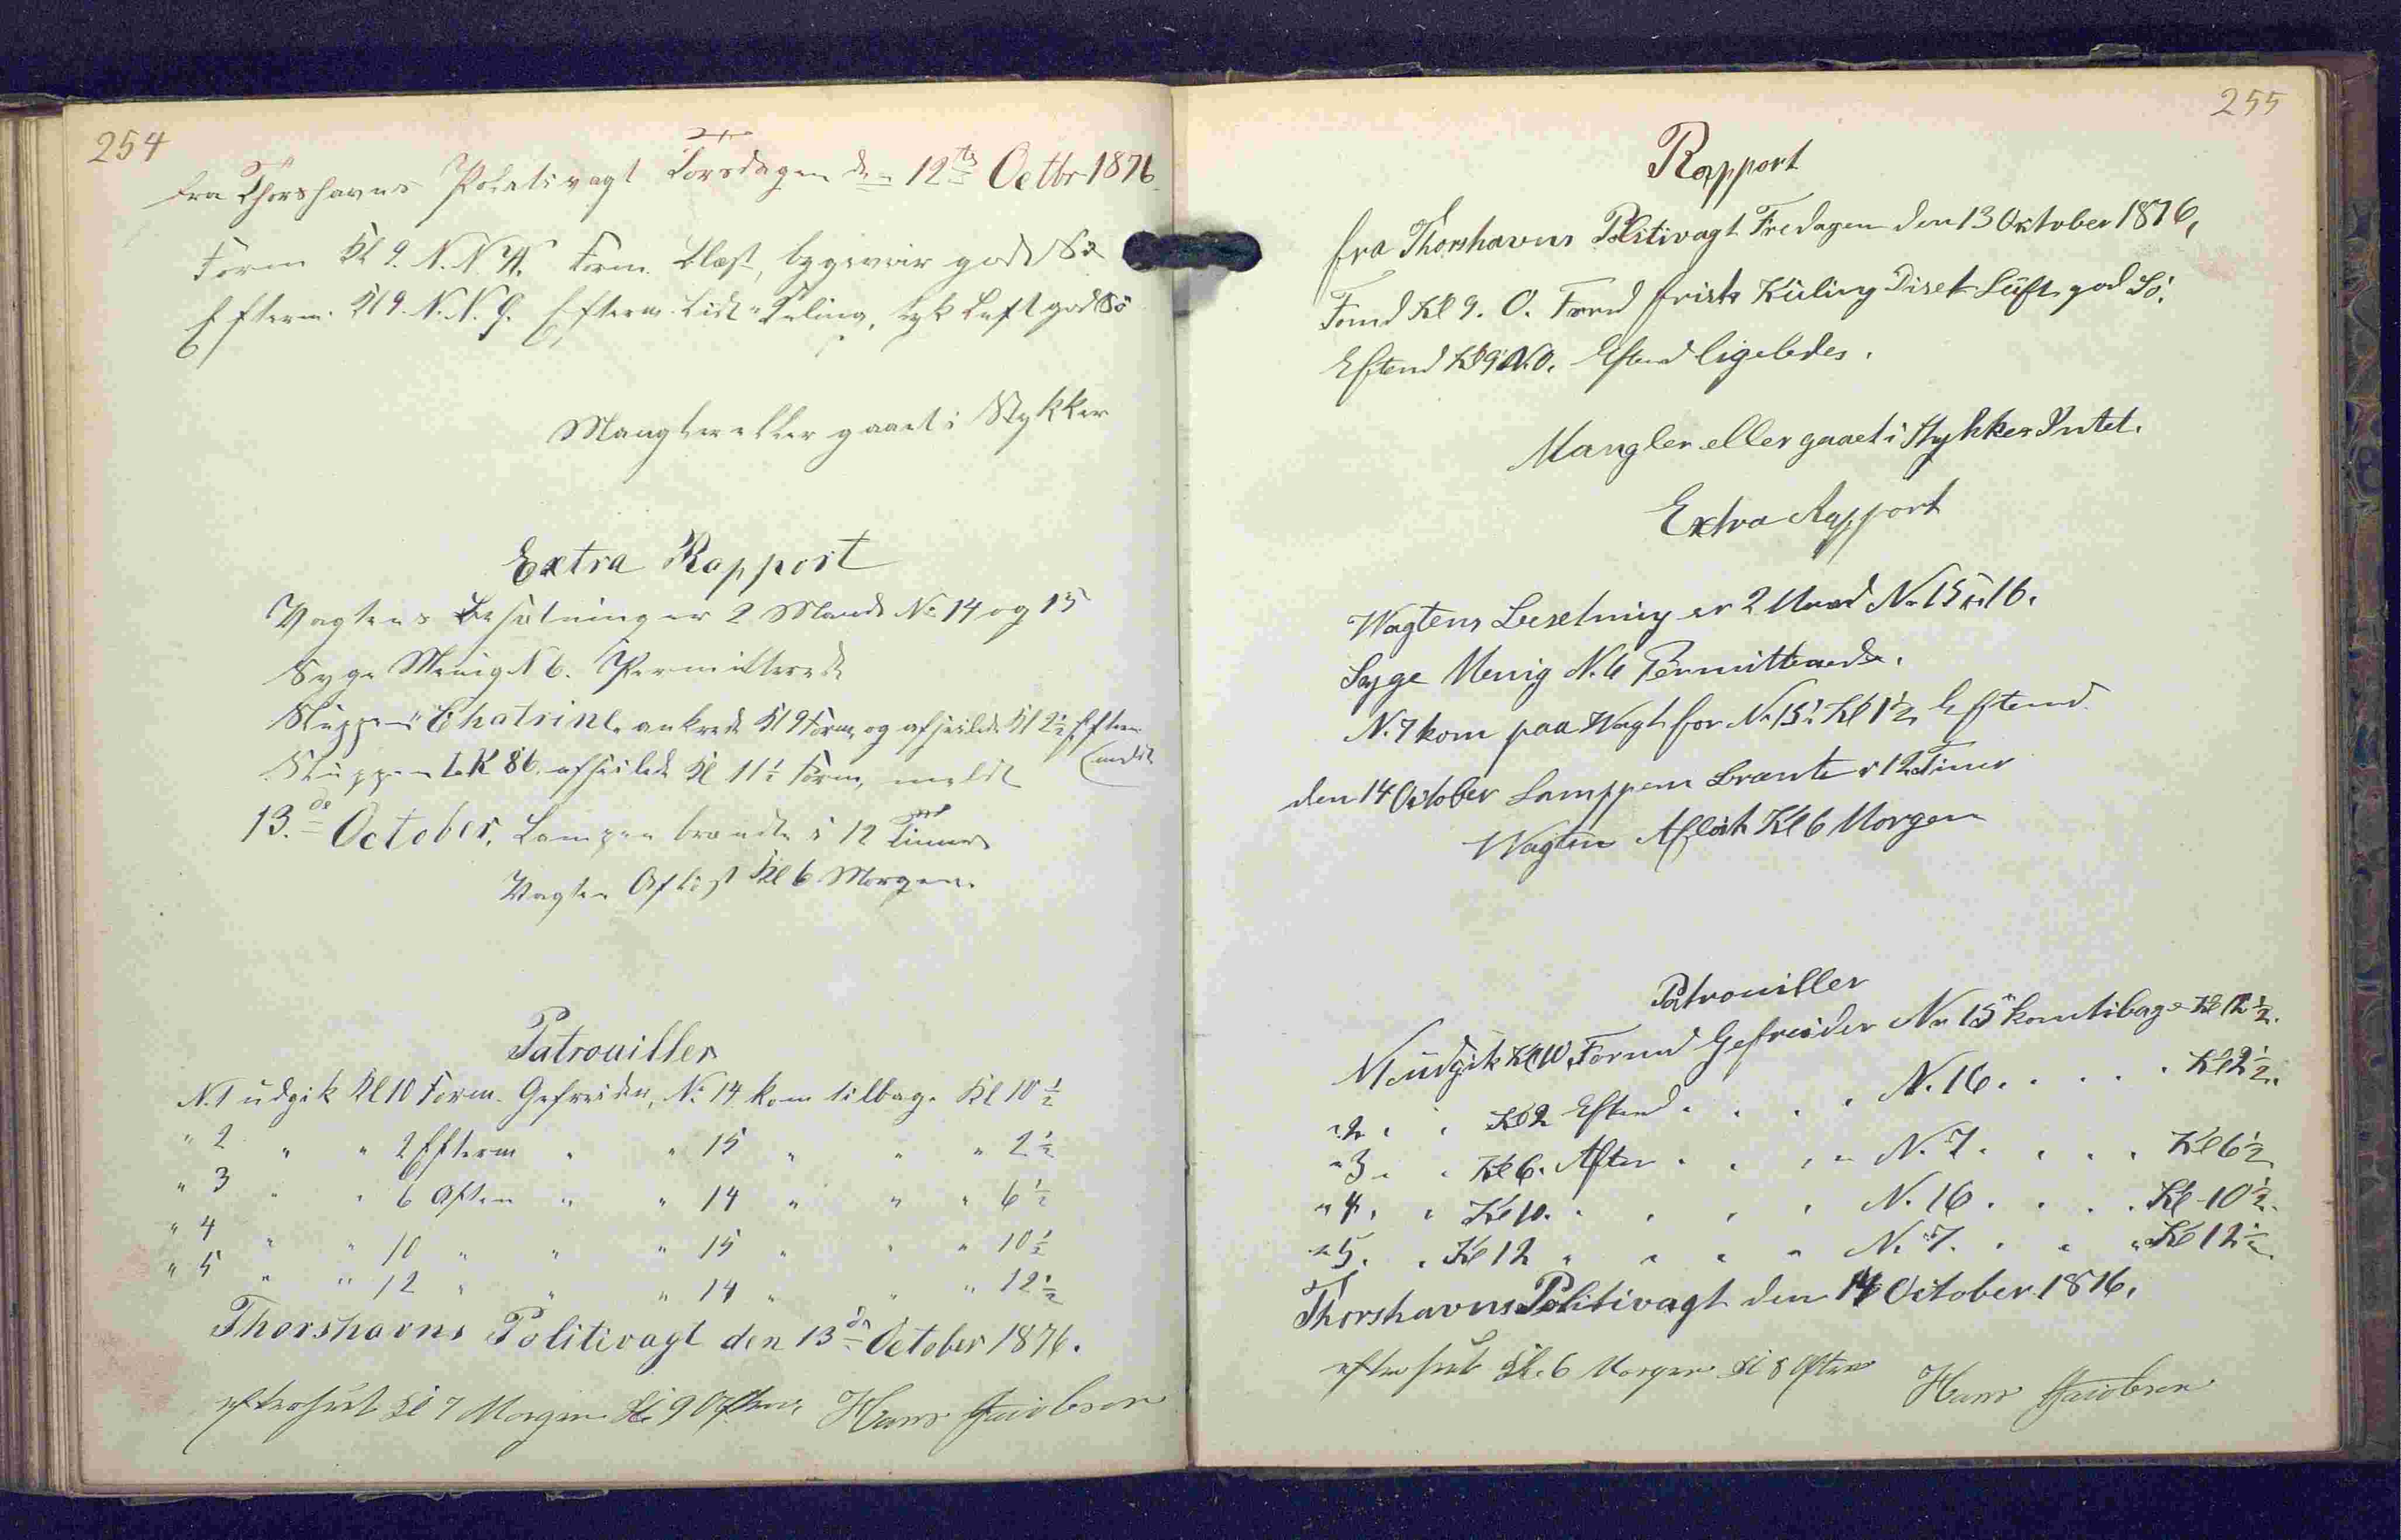 254
fra Thorshavns Politivagt Torsdagen den 12te Octbr 1876
Form Kl 9. N.N.V. Form. Blæst, bygeveir god Sø
Efterm. Kl 9. N.N.O. Efterm. Lidt Kuling, tyk Luft god Sö
Mangler eller gaaet i Stykker
Extra Rapport
Vagtens Besætning er 2 Mand No 14 og 15
Syge Menig N 6. Permitterede
Sluppen Chatrine ankrede Kl 9 Form, og afseilede Kl 2½ Efterm
(meldt
Sluppen 86. afseilede Kl 11½ Form, meldt
13.de October. Lampen brændte i 12 Timer
Vagten Aflöst Kl 6 Morgen.
Patrouiller
N.1 udgik Kl 10 Form. Gefreider, No 14 kom tilbage Kl 10½
" 2 " " 2 Efterm " " 15 " " " 2½
" 3 " " 6 Aften " " 14 " " " 6½
" 4 " " 10 " " " 15 " " " 10½
" 5 " " 12 " " " 14 " " " 12½
Thorshavns Politivagt den 13de October 1876.
efterseet Kl 7 Morgen Kl 9 Aften, Hans Jacobsen
255
Rapport
fra Thorshavns Politivagt Fredagen den 13 October 1876,
Formd Kl 9. O. Formd frisk Küling Diset Lüft god Sö.
Eftemd Kl 9 N.O. Eftemd ligeledes.
Mangler eller gaaet i Stykker Intet.
Extra Rapport
Wagtens Besetning er 2 Mand No 15 & 16.
Syge Menig N. 6 Permitterede.
N. 7 kom paa Wagt for No 15 Kl 1½ Eftemd
den 14 October Lamppen Brænte i 12 Timer
Wagten Aflöst Kl 6 Morgen
Patrouiller
N 1 udgik Kl 10 Formd Gefreider No 15 kom tilbage Kl ½.
" 2 " " Kl 2 Eftemd " " " " N. 16 . . . . Kl 2½.
" 3 " " Kl 6. Aften . . " " N. 7 . . . . Kl 6½
" 4, " Kl 10. . , , , N. 16 . . . . Kl 10½.
" 5. . Kl 12 " " " " N. 7. . " " Kl 12½
Thorshavns Politivagt den 14 October 1876.
efterseet Kl. 6 Morgen Kl 8 Aften Hans Jacobsen